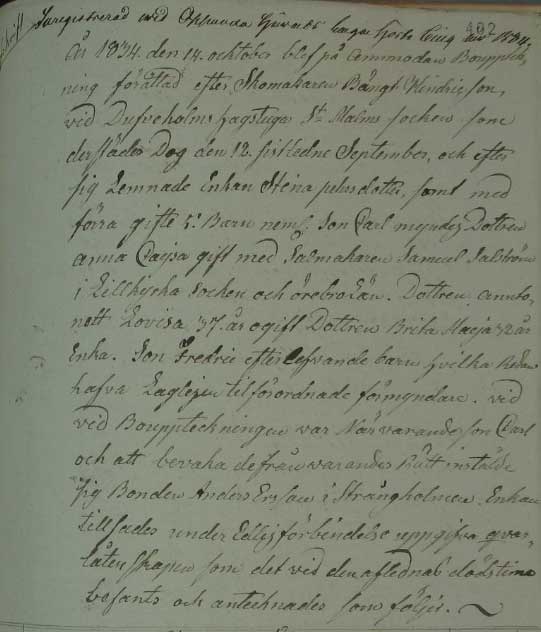 Inregistrerad wid Oppunda Häradz Laga Hösteting 1834.
År 1834. den 14. october blef på anmodan Bouppteck-
ning förättad efter Skomakaren Bängt Hindricson,
vid Dufveholms Hagstugar St Malms socken som
derstädes Dog den 12. sistledne September, och efter
sig Lemnade Enkan Stina pehrsdotter, samt med
förra gifte 5. Barn neml. Son Carl myndig Dottren
anna Cajsa gift med Sadmakaren Samuel Salström
i Lillkyrka Socken och örebro Län. Dottren, annto-
nett Lovisa 37. år ogift Dottren Brita Maja 32 år
Enka. Son Fredric efterlefvande barn hvilka Redan
hafva Lagligen tilförordnade förmyndare. vid
vid Bouppteckningen var Närvarande son Carl
och att bevaka de frånwarandes Rätt instälde
sig Bonden Anders Ersson i Strångholmen. Enkan
tillsades under Edligförbindelse uppgifva qvar-
låtenskapen som det vid den aflednas dödstima
befants och antecknades som följer.